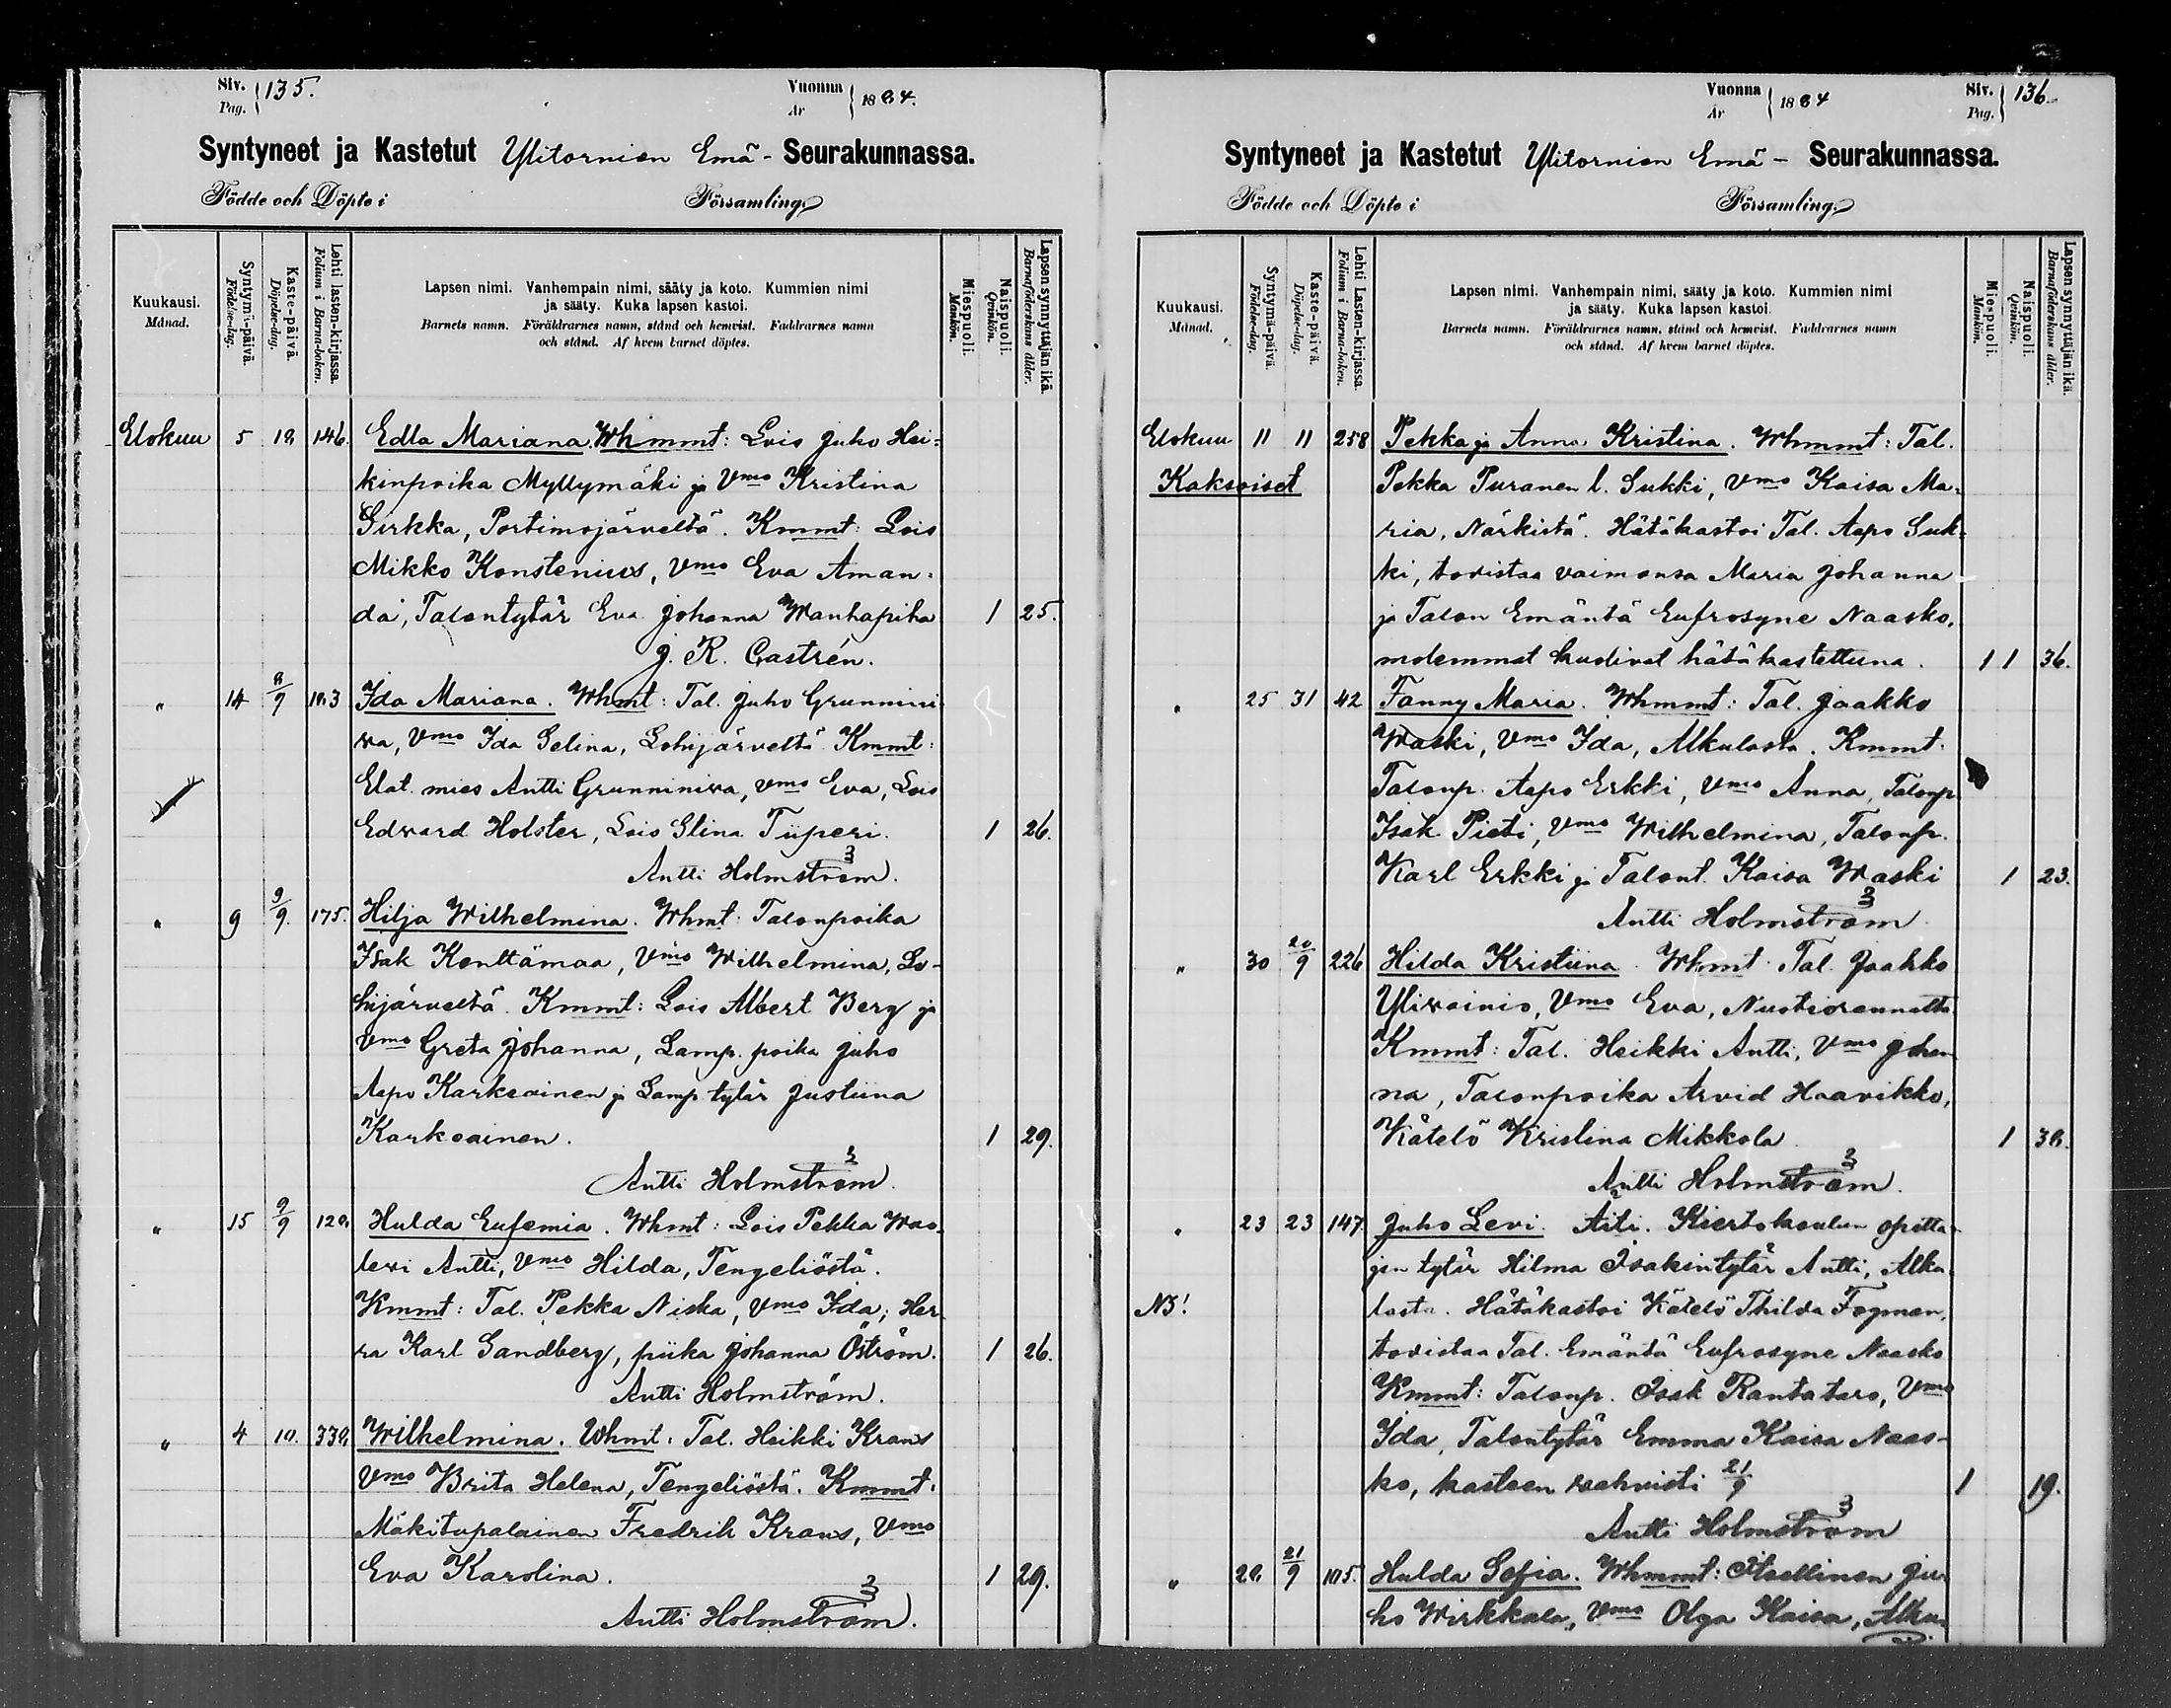 Siv. Pag. 135.
Vuonna År 1884.
Syntyneet ja Kastetut Ylitornion Emä- Seurakunnassa.
Födde och Döpte i Församling.
Kuukausi. Månad.
Syntymä-päivä. Födelse-dag.
Kaste-päivä. Döpelse-dag.
Lehti lasten-kirjassa. Folium i Barna-boken.
Lapsen nimi. Vanhempain nimi, sääty ja koto. Kummien nimi
ja sääty. Kuka lapsen kastoi.
Barnets namn. Föräldrarnes namn, stånd och hemvist. Faddrarnes namn
och stånd. Af hvem barnet döptes.
Miespuoli. Mankön.
Naispuoli. Qvinkön.
Lapsen synnyttäjän ikä. Barnaföderskans ålder.
Elokuu 5 146. Edla Mariana. Whmmt: Lois Juho Hei-
kinpoika Myllymäki ja Vmo Kristina
Sirkka, Portimojärveltä. Kmmt: Lois
Mikko Konstenius, Vmo Eva Aman-
da, Talontytär Eva Johanna Wanhapiha 1 25.
J. K. Castrén.
" 14 Ida Mariana. Whmt: Tal. Juho Grunnini
wa, Vmo Ida Selina, Lohijärveltä Kmmt:
Elat. mies Antti Grunniniwa, Vmo Eva, Lois
Edward Holster, Lois Stina Tiiperi. 1 26.
Antti Holmström.
" 9 9/9. 175. Hilja Wilhelmina. Whmt: Talonpoika
Isak Kenttämaa, Vmo Wilhelmina, Lo-
hijärveltä. Kmmt: Lois Albert Berg ja
Vmo Greta Johanna, Lamp. poika Juho
Aapo Karkoainen ja Lamp. tytär Justiina
Karkoainen. 1 29.
Antti Holmström.
" 15 9/9 Hulda Eufemia. Whmt: Lois Pekka Waa-
lewi Antti, Vmo Hilda, Tengeliöstä.
Kmmt: Tal. Pekka Niska, Vmo Ida; Her
ra Karl Sandberg, piika Johanna Öström. 1 26.
Antti Holmström.
" 4 10. Wilhelmina. Whmt: Tal. Heikki Krans
Vmo Brita Helena, Tengeliöstä. Kmmt.
Mäkitupalainen Fredrik Krans, Vmo
Eva Karolina. 1 29.
Antti Holmström.
Vuonna År 1884
Siv. Pag. 136.
Syntyneet ja Kastetut Ylitornion Emä- Seurakunnassa.
Födde och Döpte i Församling.
Kuukausi. Månad.
Syntymä-päivä. Födelse-dag.
Kaste-päivä. Döpelse-dag.
Lehti Lasten-kirjassa. Folium i Barna-boken.
Lapsen nimi. Vanhempain nimi, sääty ja koto. Kummien nimi
ja sääty. Kuka lapsen kastoi.
Barnets namn. Föräldrarnes namn, stånd och hemvist. Faddrarnes namn
och stånd. Af hvem barnet döptes.
Miespuoli. Mankön.
Naispuoli. Qvinkön.
Lapsen synnyttäjän ikä. Barnaföderskans ålder.
Elokuu 11 11 258 Pekka ja Anna Kristina. Whmmt: Tal.
Kaksoiset Pekka Puranen l. Sukki, Vmo Kaisa Ma-
ria, Närkistä. Hätäkastoi Tal. Aapo Suk-
ki, todistaa vaimonsa Maria Johanna
ja Talon Emäntä Eufrosyne Naasko,
molemmat kuolivat hätäkastettuna. 1 1 36.
" 25 31 42 Fanny Maria. Whmmt: Tal. Jaakko
Waski, Vmo Ida, Alkulasta. Kmmt.
Talonp. Aapo Erkki, Vmo Anna, Talonp.
Isak Pieti, Vmo Wilhelmina, Talonp.
Karl Erkki ja Talont. Kaisa Waski 1 23.
Antti Holmström
" 30 20/9 226 Hilda Kristiina. Whmt. Tal. Jaakko
Yliwainio, Vmo Eva, Nuotiorannalta
Kmmt: Tal. Heikki Antti, Vmo Johan
na, Talonpoika Arvid Haavikko,
Kätelö Kristina Mikkola 1
Antti Holmström.
" 23 23 147 Juho Levi. Äiti. Kiertokoulun opetta-
jan tytär Hilma Isakintytär Antti, Alku-
NB! lasta. Hätäkastoi Kätelö Thilda Fogman,
todistaa Tal. Emäntä Eufrosyne Naasko
Kmmt: Talonp. Isak Rantataro, Vmo
Ida, Talontytär Emma Kaisa Naas-
ko, kasteen vahvisti 21/9 1 19.
Antti Holmström
" 21/9 Hulda Sofia. Whmmt: Itsellinen Ju-
ho Wirkkala, Vmo Olga Kaisa, Alku-